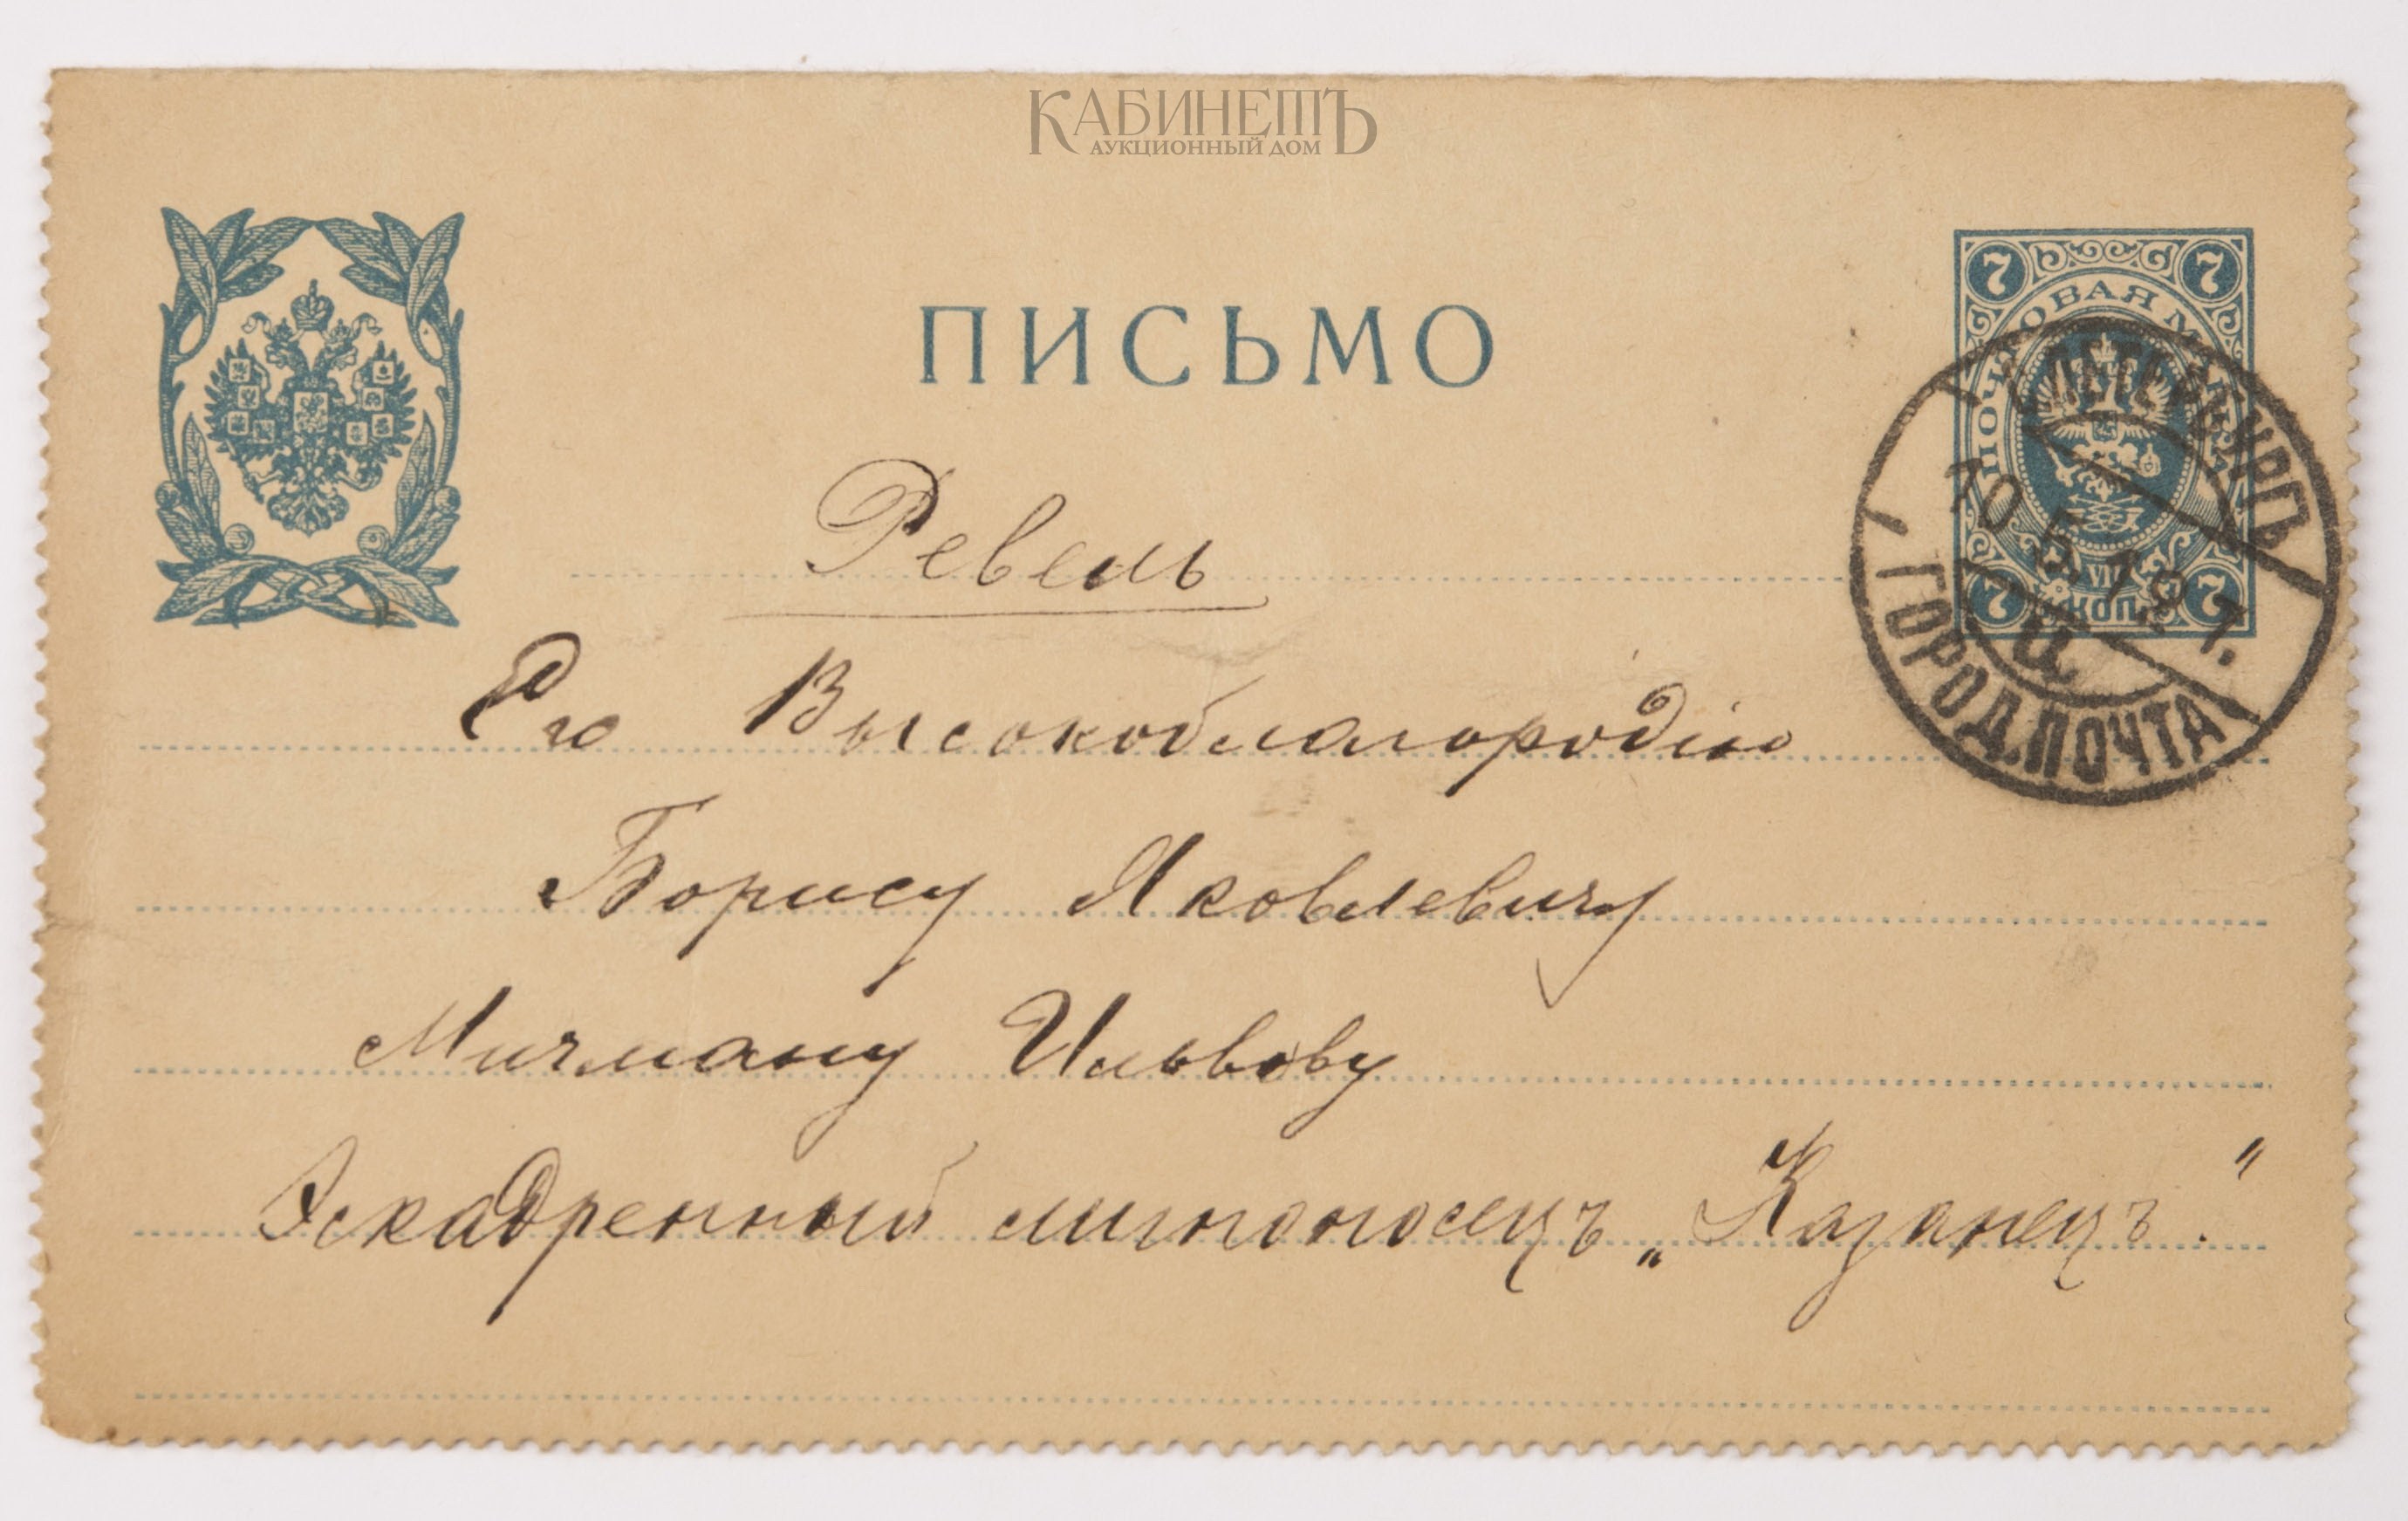 КАБИНЕТЪ
АУКЦИОННЫЙ ДОМ
ПИСЬМО
7 7
ПОЧТОВАЯ МАРКА
7 КОП. 7
С. ПЕТЕРБУРГЪ
10 5
ГОРОД. ПОЧТА
Ревель
Его Высокоблагородію
Борису Яковлевичу
Мичману Ильвову
Эскадренный миноносецъ „Казанецъ."